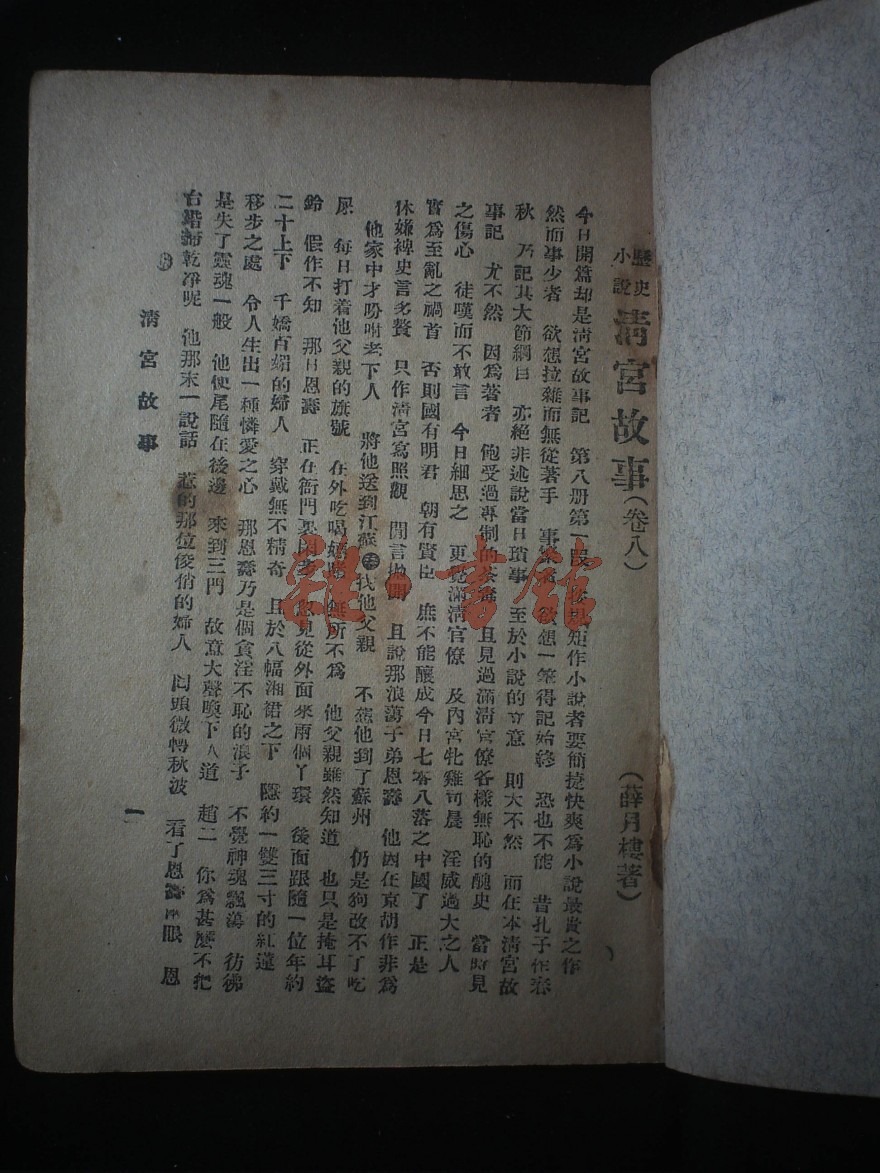 歷史小說 清宮故事(卷八) (薛月樓著)
今日開篇却是清宮故事記 第八册第一段 作小說者要簡捷快爽爲小說最貴之作
然而事少者 欲想拉雜而無從著手 事繁者 欲想一筆得記始終 恐也不能 昔孔子作春
秋 乃記其大節綱目 亦絕非述說當日瑣事 至於小說的立意 則大不然 而在本清宮故
事記 尤不然 因爲著者 飽受過專制的荼毒 且見過滿清官僚各樣無恥的醜史 當時見
之傷心 徒嘆而不敢言 今日細思之 更覺滿清官僚 及內宮牝雞司晨 淫威過大之人
實爲至亂之禍首 否則國有明君 朝有賢臣 庶不能釀成今日七零八落之中國了 正是
休嫌裨史言多贅 只作清宮寫照觀 閒言拋開 且說那浪蕩子弟恩壽 他因在京胡作非爲
他家中才吩咐老下人 將他送到江蘇去找他父親 不想他到了蘇州 仍是狗改不了吃
屎 每日打着他父親的旗號 在外吃喝嫖賭 無所不爲 他父親雖然知道 也只是掩耳盜
鈴 假作不知 那日恩壽 正在衙門裏閒步 忽見從外面來兩個丫環 後面跟隨一位年約
二十上下 千嬌百媚的婦人 穿戴無不精奇 且於八幅湘裙之下 隱約一雙三寸的紅蓮
移步之處 令人生出一種憐愛之心 那恩壽乃是個貪淫不恥的浪子 不覺神魂飄蕩 彷彿
是失了靈魂一般 他便尾隨在後邊 來到三門 故意大聲喚下人道 趙二 你爲甚麽不把
台堦掃乾凈呢 他那末一說話 惹的那位俊俏的婦人 回頭微轉秋波 看了恩壽兩眼 恩
清宮故事
一
雜·書館